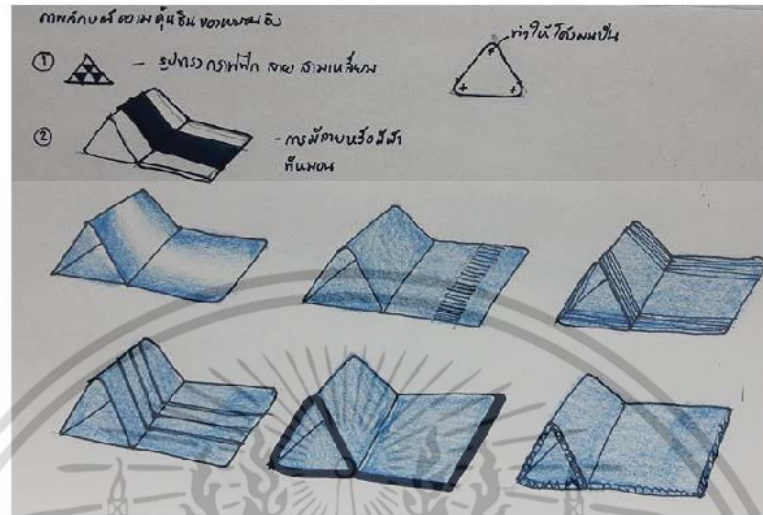 ภาพลักษณ์ความคุ้นชินของหมอนอิง
① - รูปทรงกราฟฟิก ลาย สามเหลี่ยม
ทำให้โค้งมนขึ้น
② - การมีลายหรือสีผ้า
ที่หมอน